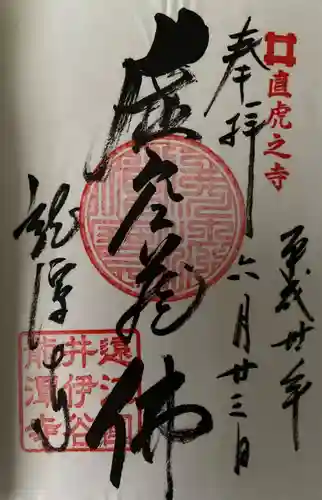 直虎之寺
奉拝
平成廿九年
六月廿三日
虚空蔵佛
龍潭寺
遠江國
井伊谷
龍潭寺